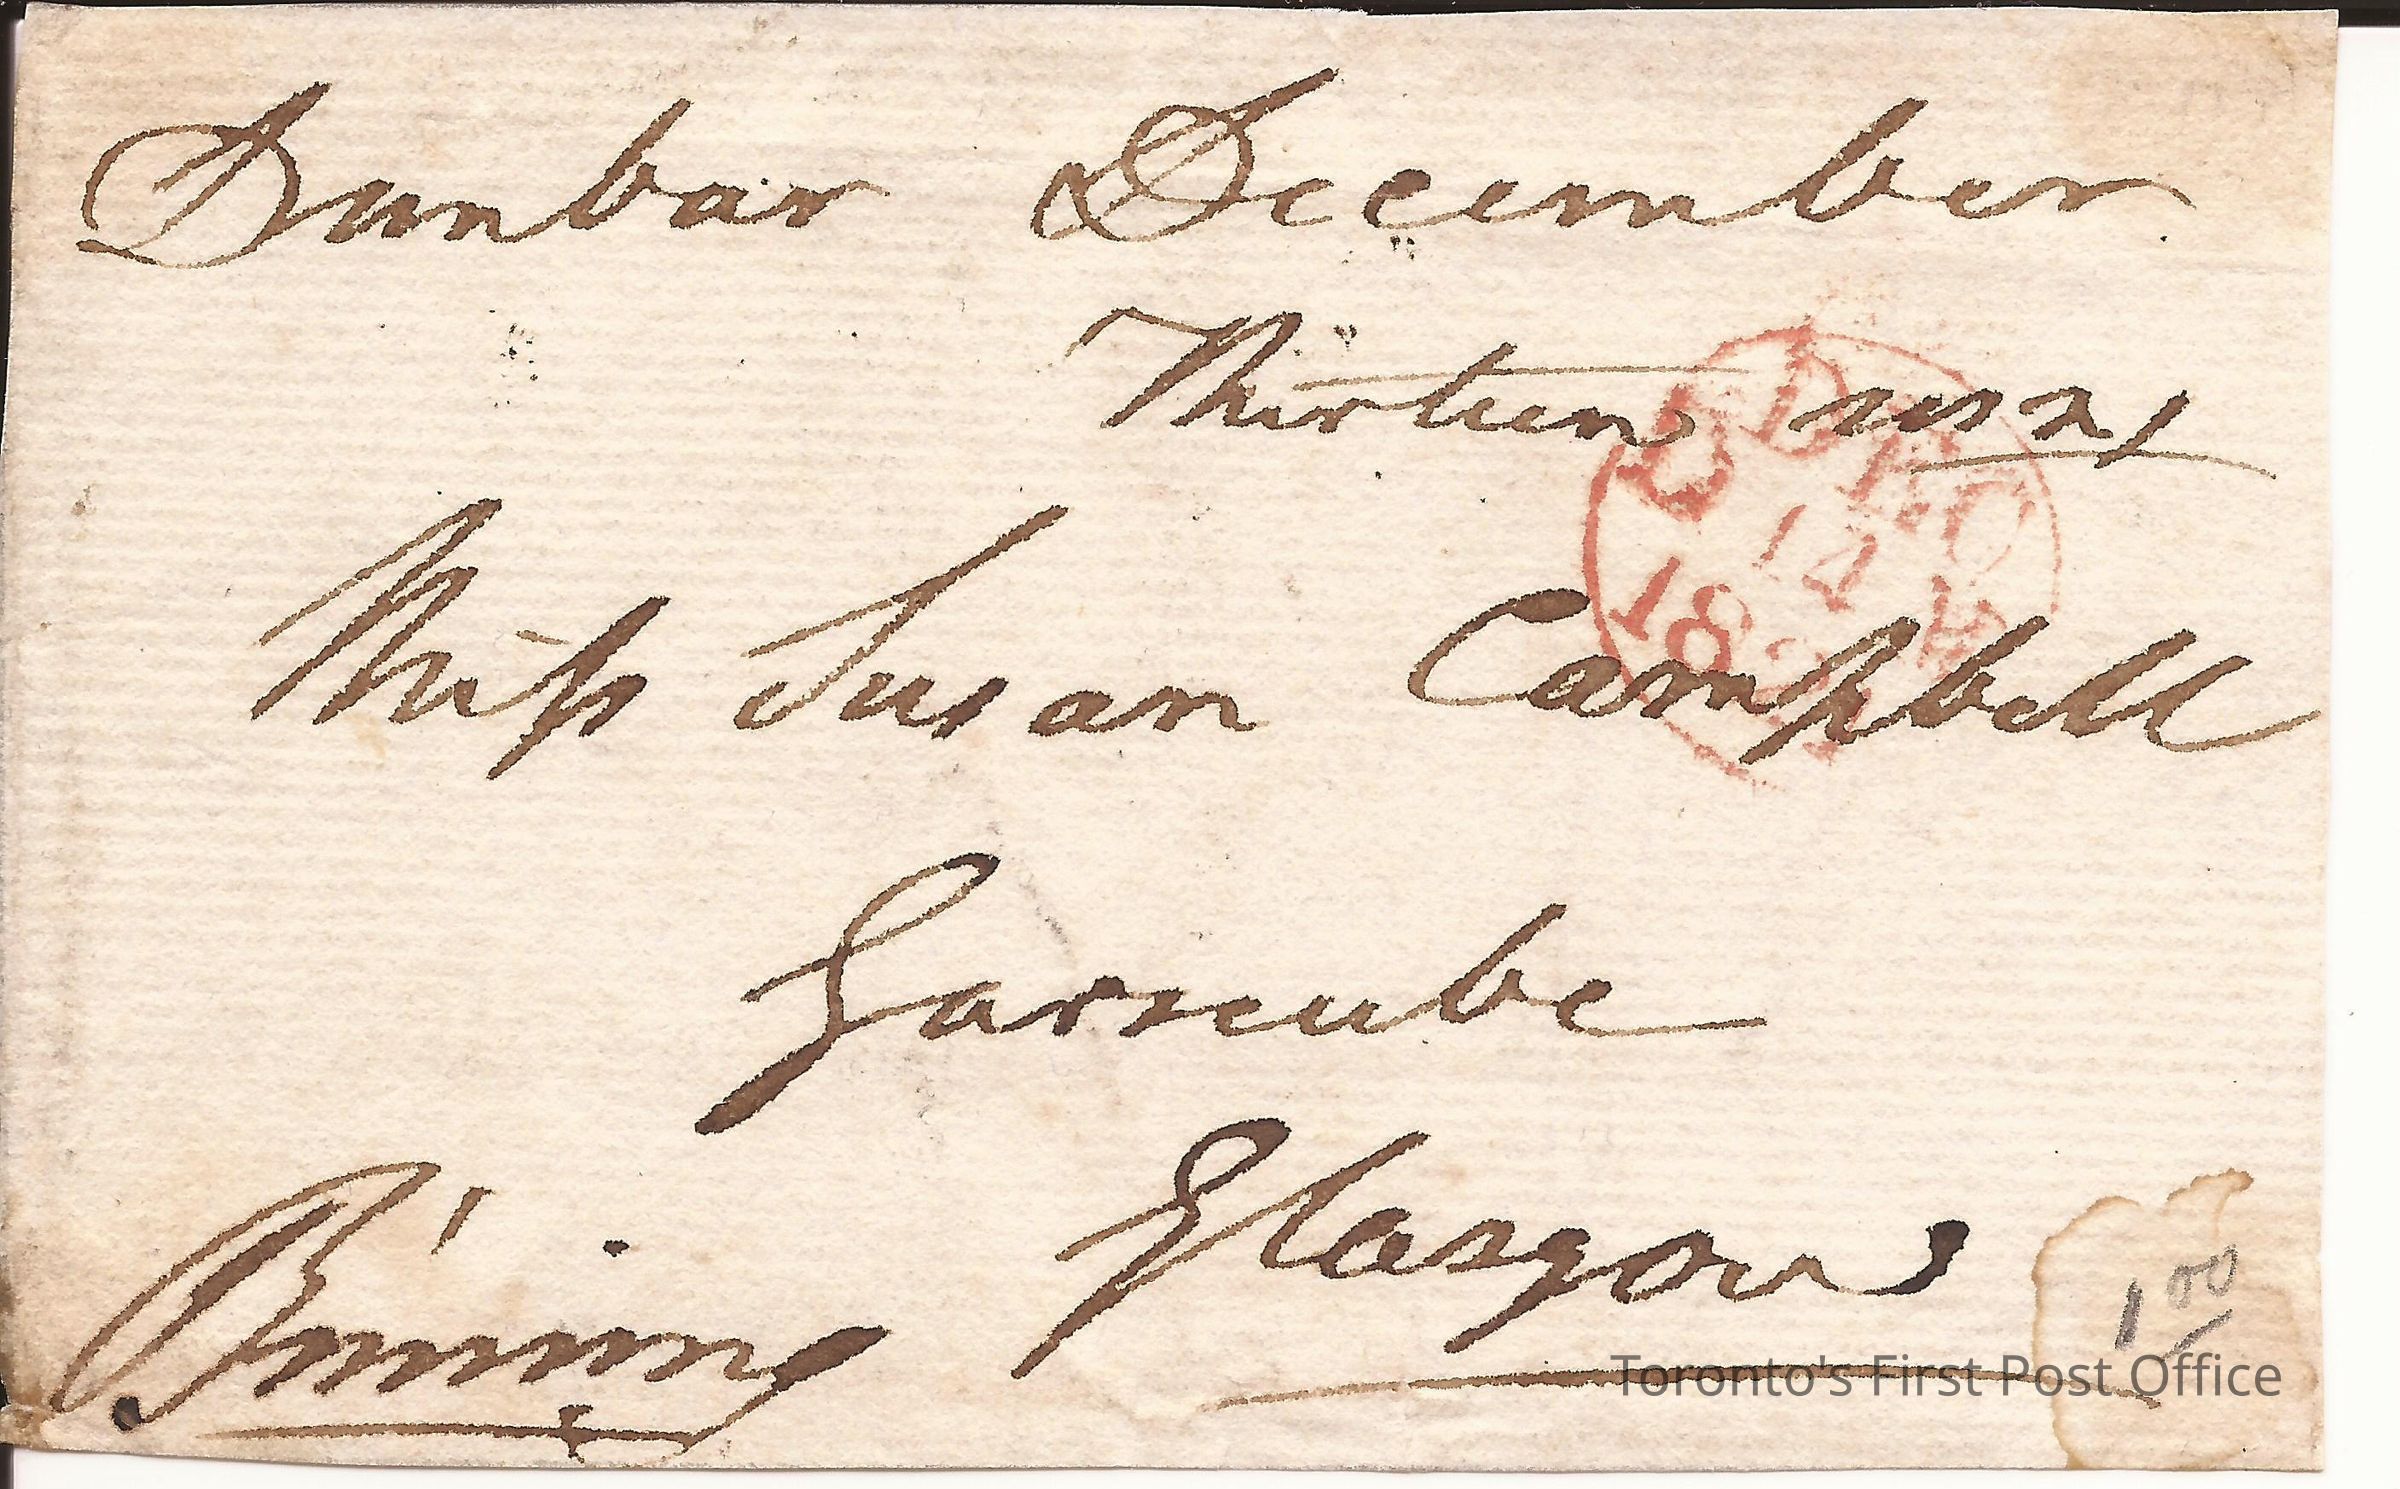 Dunbar December
Thirteen 1821
Miſs Susan Campbell
Garscube
Glasgow
Binning
1 00
Toronto's First Post Office